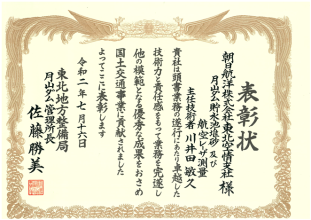 表彰状
朝日航洋株式会社東北空情支社 様
月山ダム貯水池堆砂及び
航空レーザ測量
主任技術者 川井田 敏久
貴社は頭書業務の遂行にあたり卓越した
技術力と責任感をもって業務を完遂し
他の模範となる優秀な成果をおさめ
国土交通事業に貢献されました
よってここに表彰します
令和二年七月十六日
東北地方整備局
月山ダム管理所長
佐藤勝美